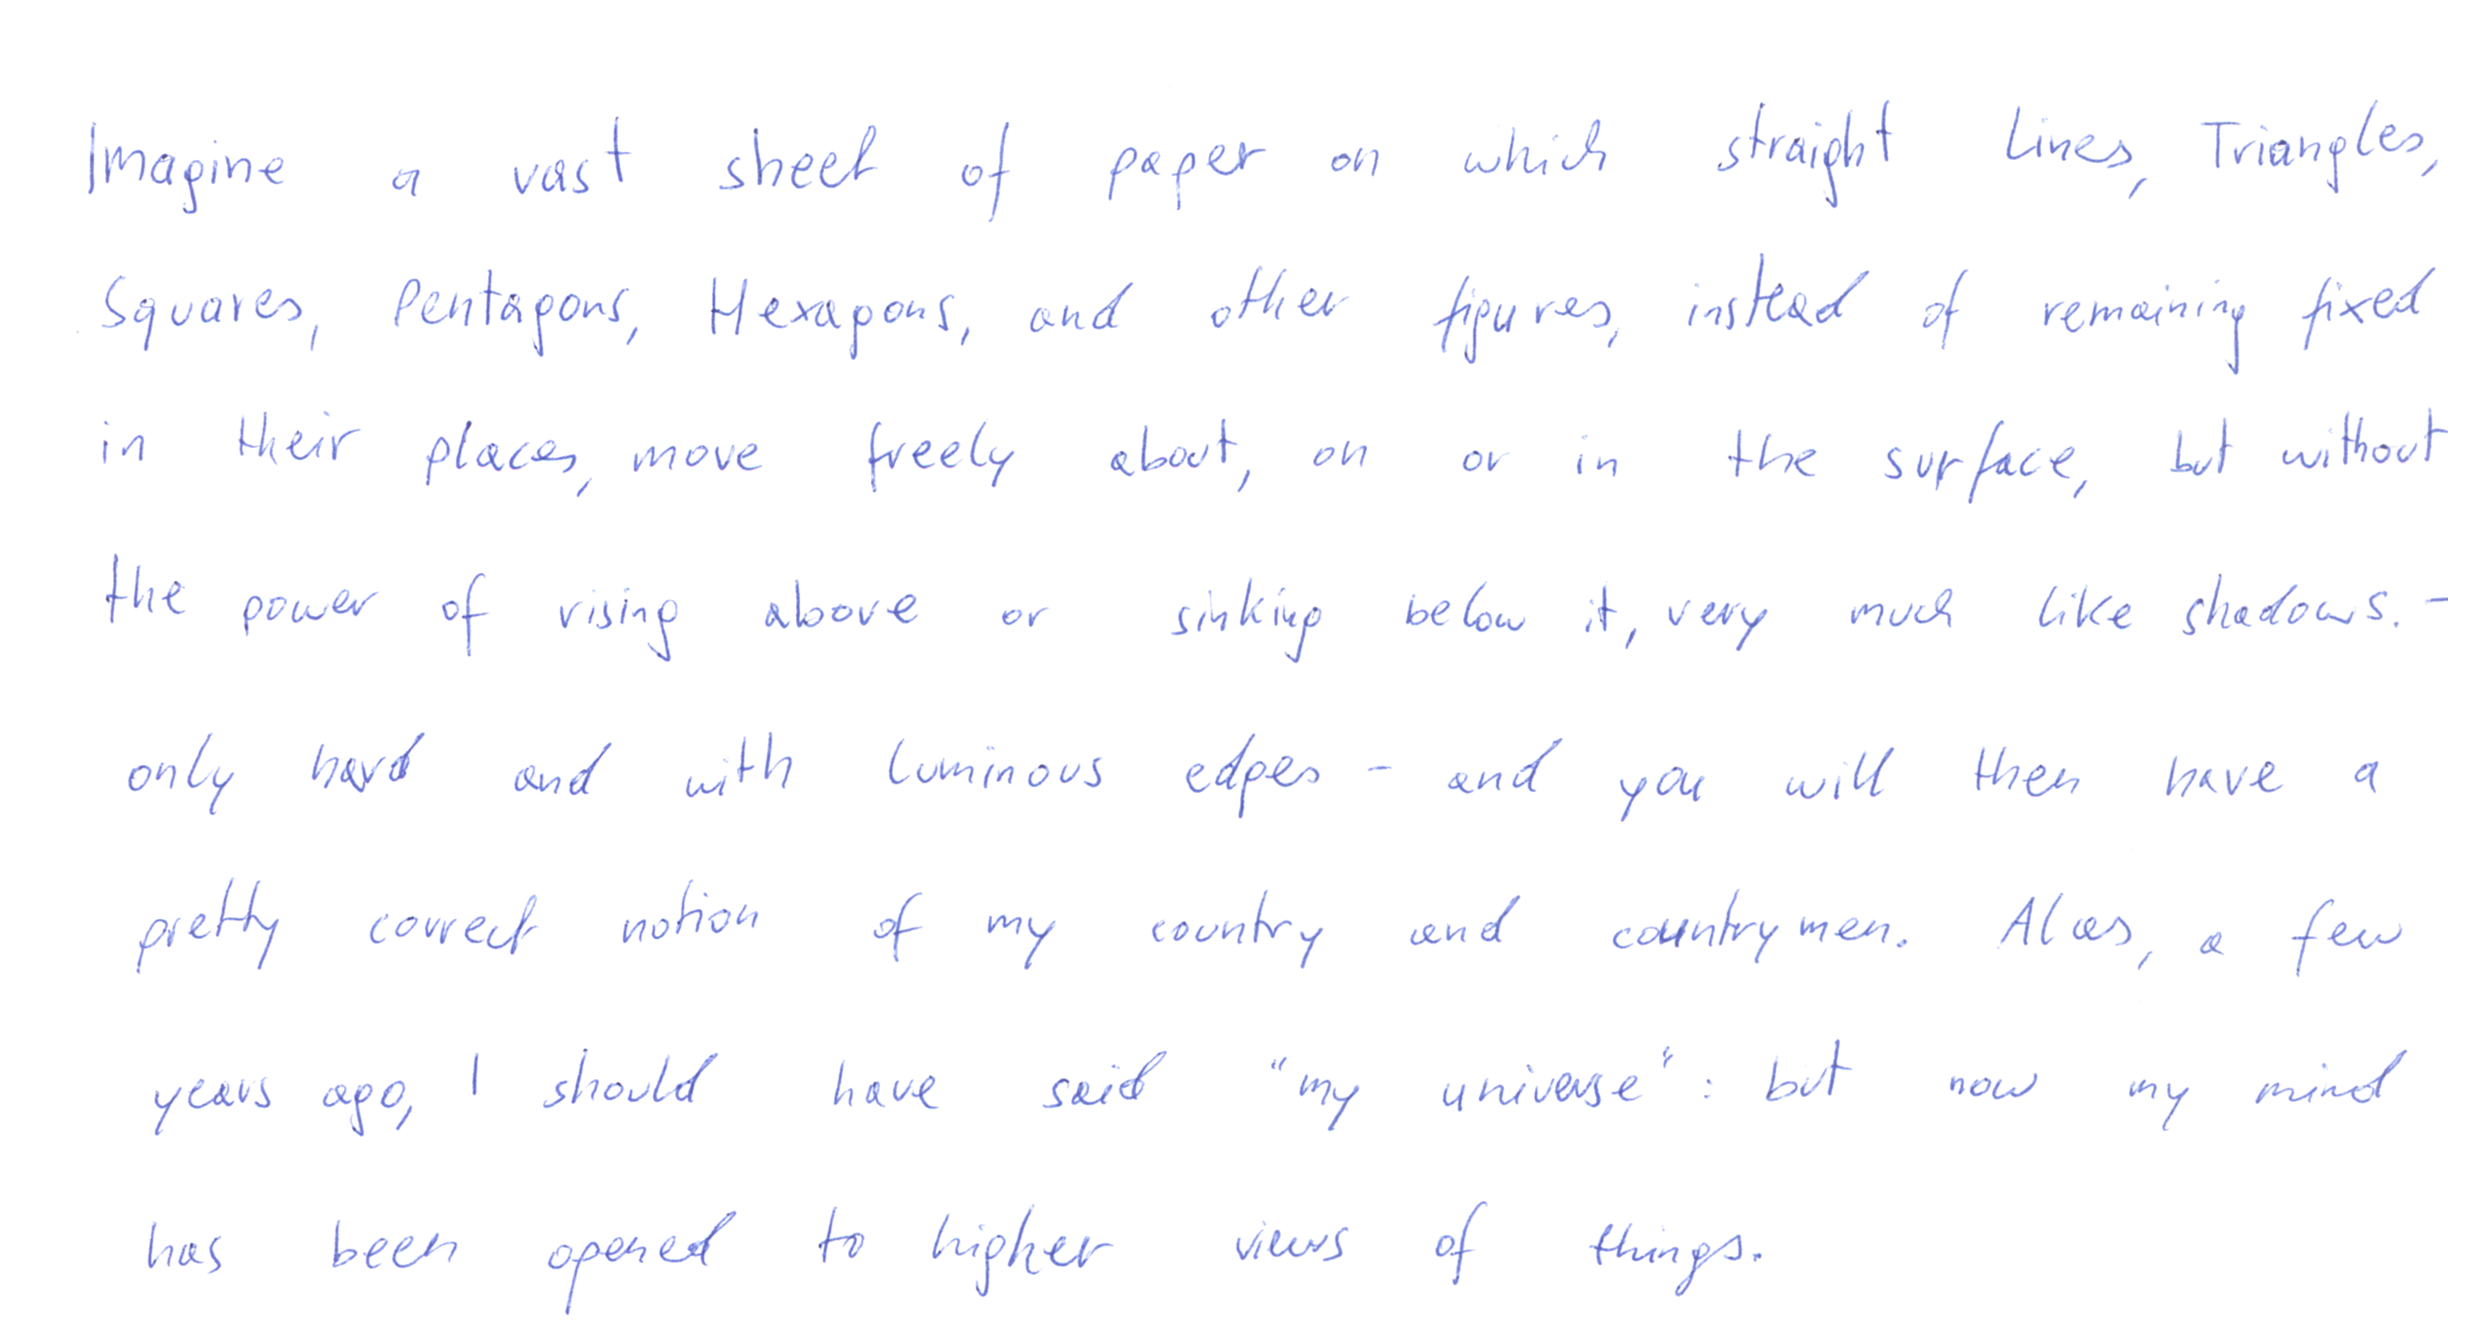 Imagine a vast sheet of paper on which straight Lines, Triangles,
Squares, Pentagons, Hexagons, and other figures, instead of remaining fixed
in their places, move freely about, on or in the surface, but without
the power of rising above or sinking below it, very much like shadows. -
only hard and with luminous edges - and you will then have a
pretty correct notion of my country and countrymen. Alas, a few
years ago, I should have said "my universe": but now my mind
has been opened to higher views of things.